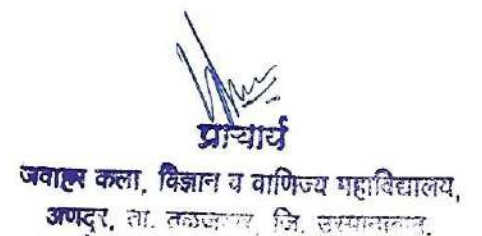 प्राचार्य
जवाहर कला, विज्ञान व वाणिज्य महाविद्यालय,
अणदूर, ता. तुळजापूर, जि. उस्मानाबाद.